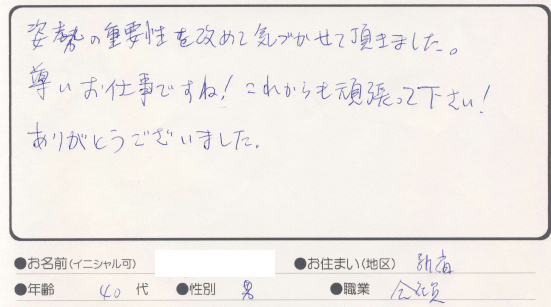 姿勢の重要性を改めて気づかせて頂きました。
尊いお仕事ですね！これからも頑張って下さい！
ありがとうございました。
●お名前(イニシャル可)　●お住まい(地区)　新宿
●年齢　40 代　●性別　男　●職業　会社員